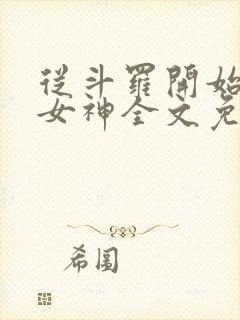 從斗羅開始
女神全文免
希圖